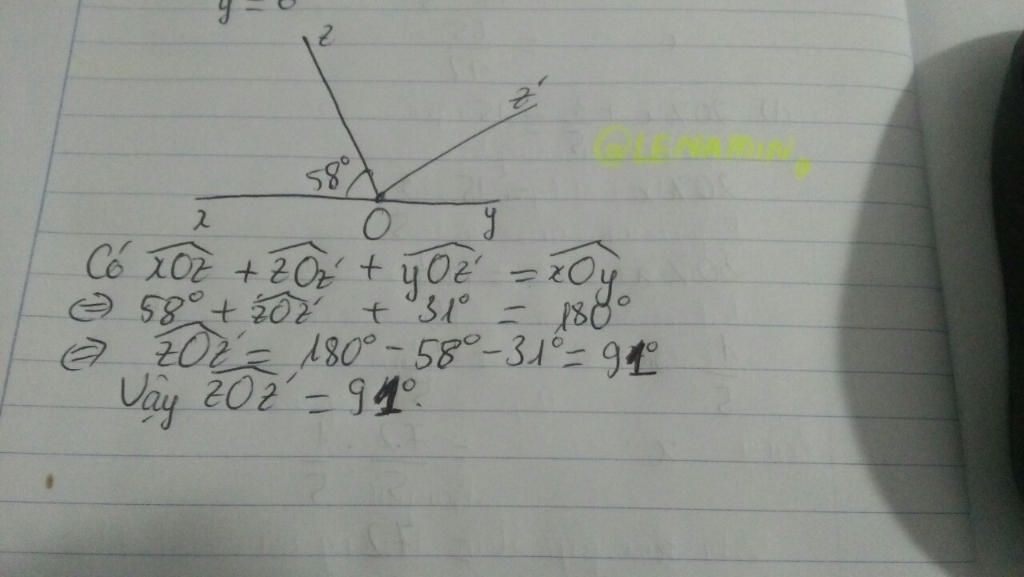 y = 6
z
z'
@LENAMIN
58°
x
O
y
Có xOz + zOz' + yOz' = xOy
⇔ 58° + zOz' + 31° = 180°
⇔ zOz' = 180° - 58° - 31° = 91°
Vậy zOz' = 91°.